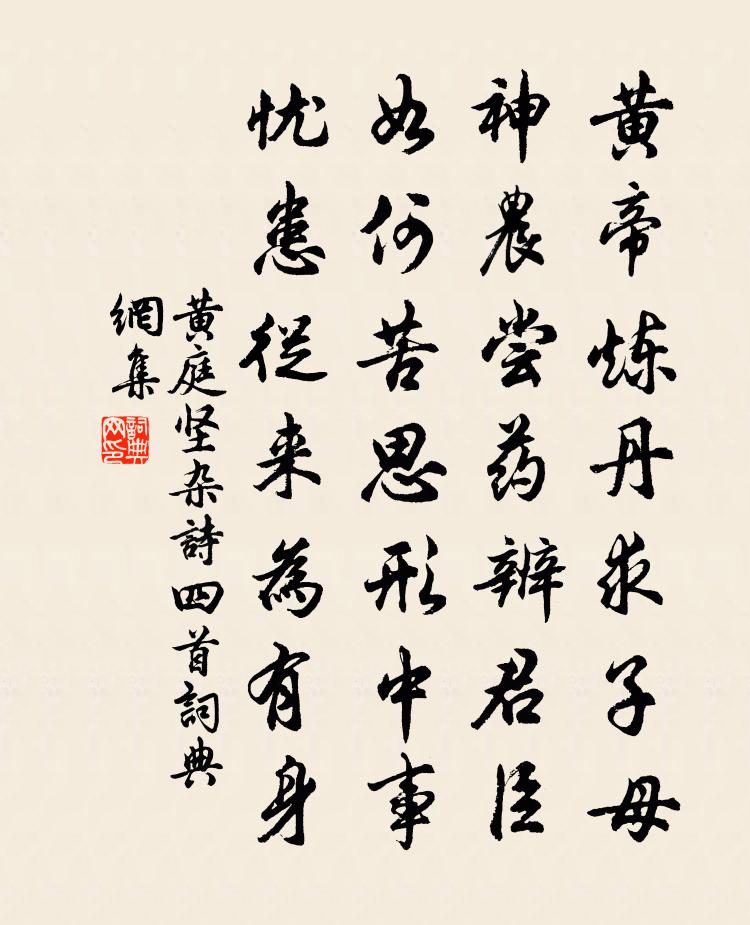 黄帝炼丹求子母
神農尝药辨君臣
如何苦思形中事
忧患從来為有身
黄庭坚杂詩四首詞典
網集
詞典
网印